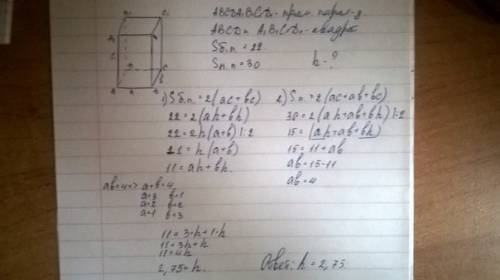 ABCDA₁B₁C₁D₁ - прям. парал-д.
ABCD и A₁B₁C₁D₁ - квадр
Sб.п. = 22
Sп.п. = 30 h - ?
1) Sб.п. = 2(ac+bc)
22 = 2(ah+bh)
22 = 2h(a+b) |:2
11 = h(a+b)
11 = ah+bh.
2) Sп. = 2(ac+ab+bc)
30 = 2(ah+ab+bh) |:2
15 = (ah+ab+bh)
15 = 11+ab
ab = 15-11
ab = 4
ab=4 => a+b=4
a=3 b=1
a=2 b=2
a=1 b=3
11 = 3·h+1·h
11 = 3h+h
11 = 4h
2,75 = h.
Ответ: h = 2,75